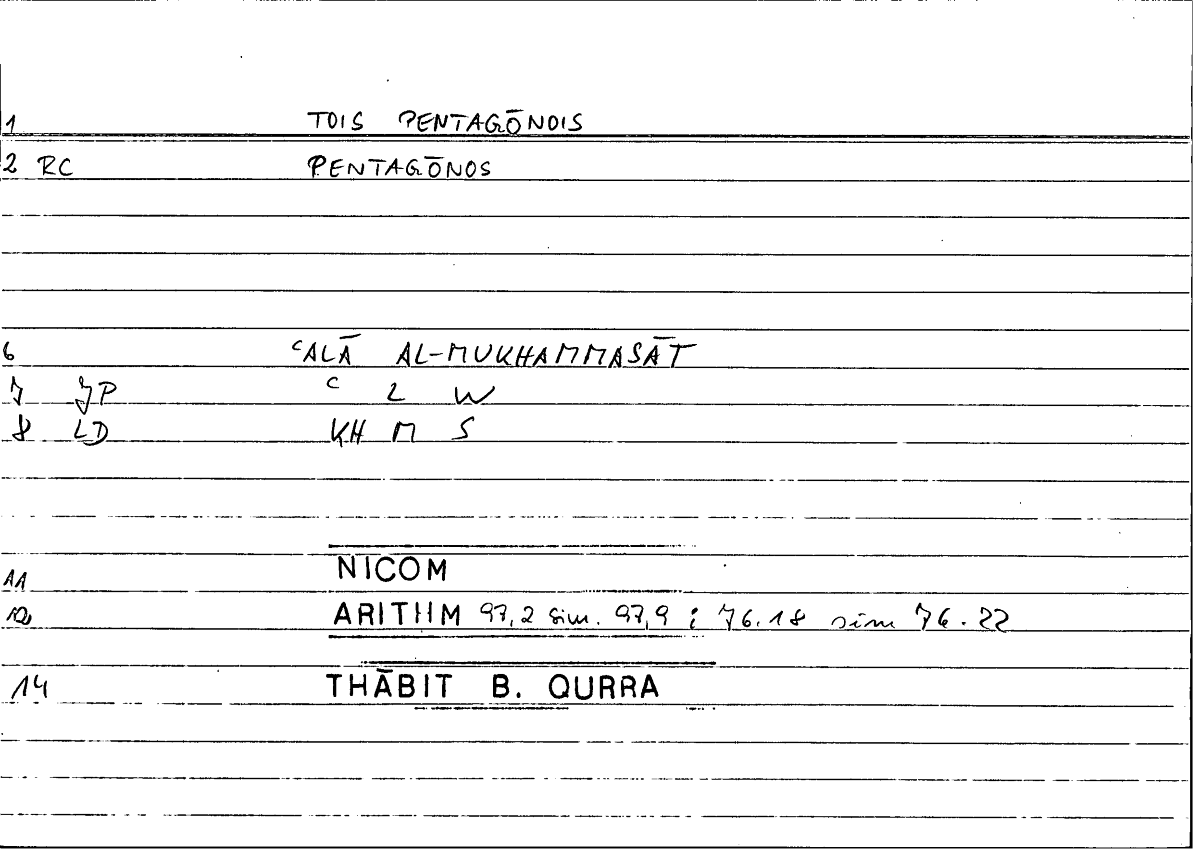 1 TOIS PENTAGŌNOIS
2 RC PENTAGŌNOS
6 ᶜALĀ AL-MUKHAMMASĀT
7 JP ᶜ L W
8 LD KH M S
11 NICOM
12 ARITHM 97,2 sim. 97,9 ; 76.18 sim 76.22
14 THĀBIT B. QURRA